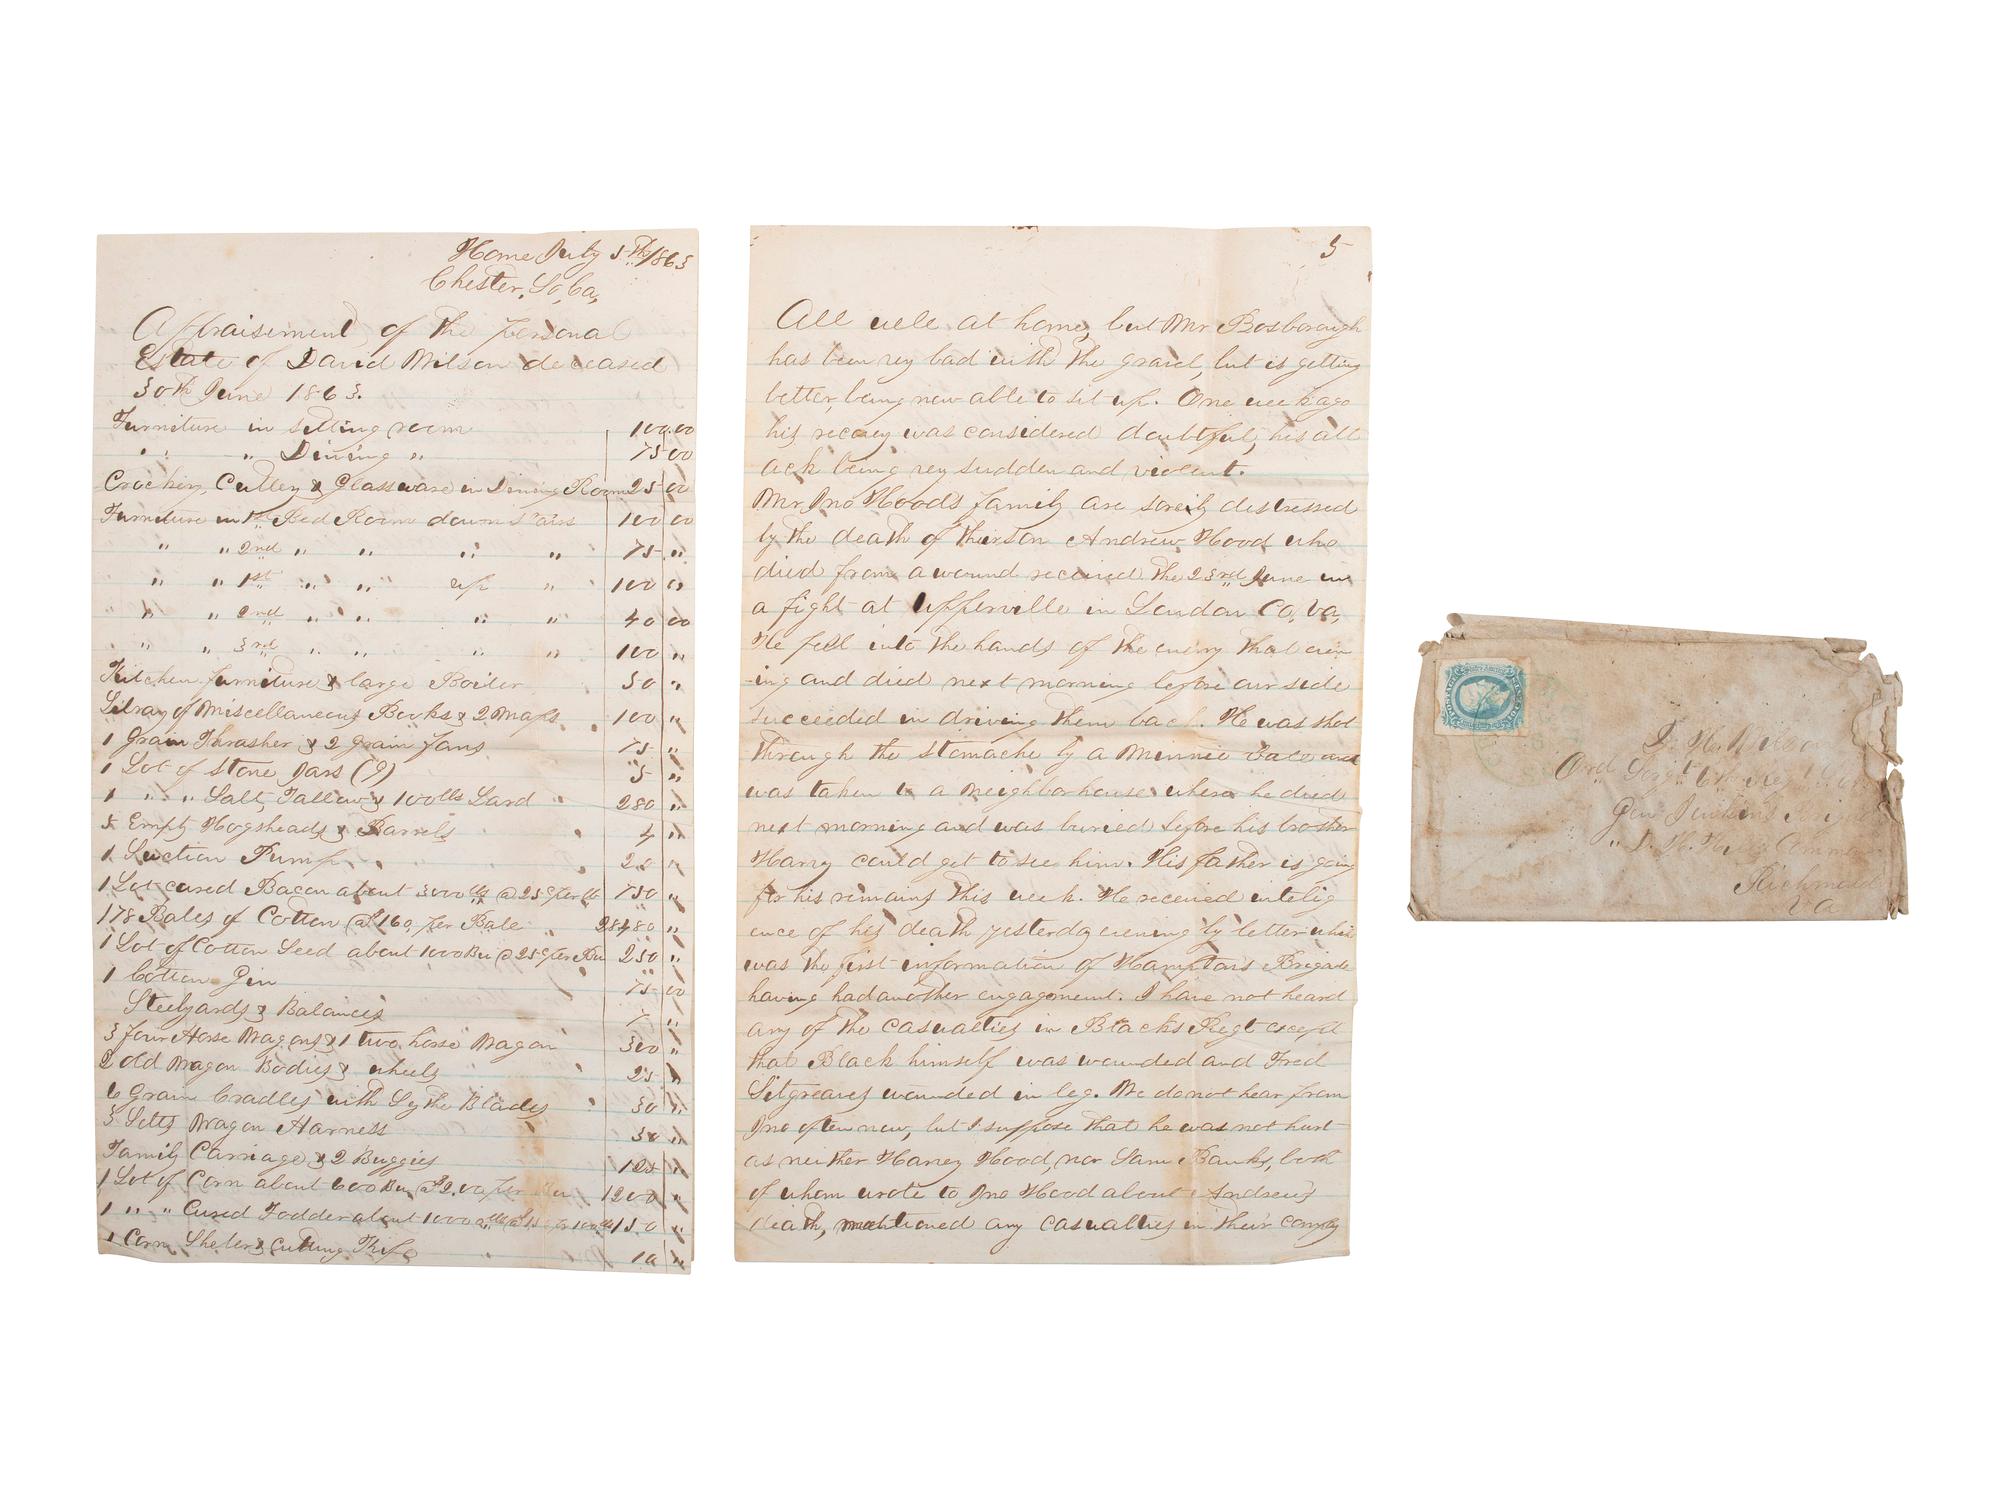 Home July 5th/1863
Chester, So, Ca,
Appraisement of the personal
Estate of David Wilson deceased
30th June 1863.
Furniture in sitting room 100 00
" " Dining " 75 00
Crockery, Cutley & Glassware in Dining Room 25 00
Furniture in 1st Bed Room down stairs 100 00
" " 2nd " " " " 75 "
" " 1st " " up " 100 "
" " 2nd " " " " 40 00
" " 3rd " " " " 100 "
Kitchen furniture & large Boiler 50 "
Libray of Miscellaneous Books & 2 Maps 100 "
1 Grain Thrasher & 2 grain fans 75 "
1 Lot of stone Jars (9) 5 "
1 " " Salt, Tallow & 100 lbs Lard 280 "
5 Empty Hogsheads & Barrels 4 "
1 Suction Pump 20 "
1 Lot cured Bacon about 3000 lbs @ 25c per lb 750 "
178 Bales of Cotton @ $160, per Bale 28480 "
1 Lot of Cotton Seed about 1000 Bu @ 25c per Bu 250 "
1 Cotton Gin 75 00
Steelyards & Balances "
3 four Horse Wagons & 1 two horse Wagon 300 "
2 old Wagon Bodies & wheels 25 "
6 Grain Cradles with Sythe Blades 30 "
3 Setts Wagon Harness 30 "
Family Carriage & 2 Buggies 125 "
1 Lot of Corn about 600 Bu, @ $2.00 per Bu 1200 "
1 " " Cured Fodder about 1000 150 "
1 Corn Sheler & Cutting Knife 10 "
5
All well at home, but Mr Rosborough
has been vey bad with the gravel, but is getting
better, being now able to sit up. One week ago
his recovey was considered doubtful, his att
ack being vey sudden and violent.
Mr Jno Hood's family are sorely destressed
by the death of their son Andrew Hood who
died from a wound received the 23rd June in
a fight at Upperville in Loudon Co, Va,
He fell into the hands of the enemy that even
-ing and died next morning before our side
succeeded in driving them back. He was shot
through the stomache by a Minnie Ball and
was taken to a neighborhouse where he died
next morning and was buried before his brother
Harvey could get to see him. His father is going
for his remains this week. He received intelig
ence of his death yesterday evening by letter which
was the first information of Hampton's Brigade
having had another engagement. I have not heard
any of the casualties in Blacks Regt except
that Black himself was wounded and Fred
Sitgreaves wounded in leg. We do not hear from
Jno often now, but I suppose that he was not hurt
as neither Harvey Hood, nor Sam Banks, both
of whom wrote to Jno Hood about Andrew's
death, mentioned any casualties in their compy
J. H. Wilson
Ord Sergt 6th Regt
Gen Jenkins Brigade
" D. H. Hills
Richmond
Va